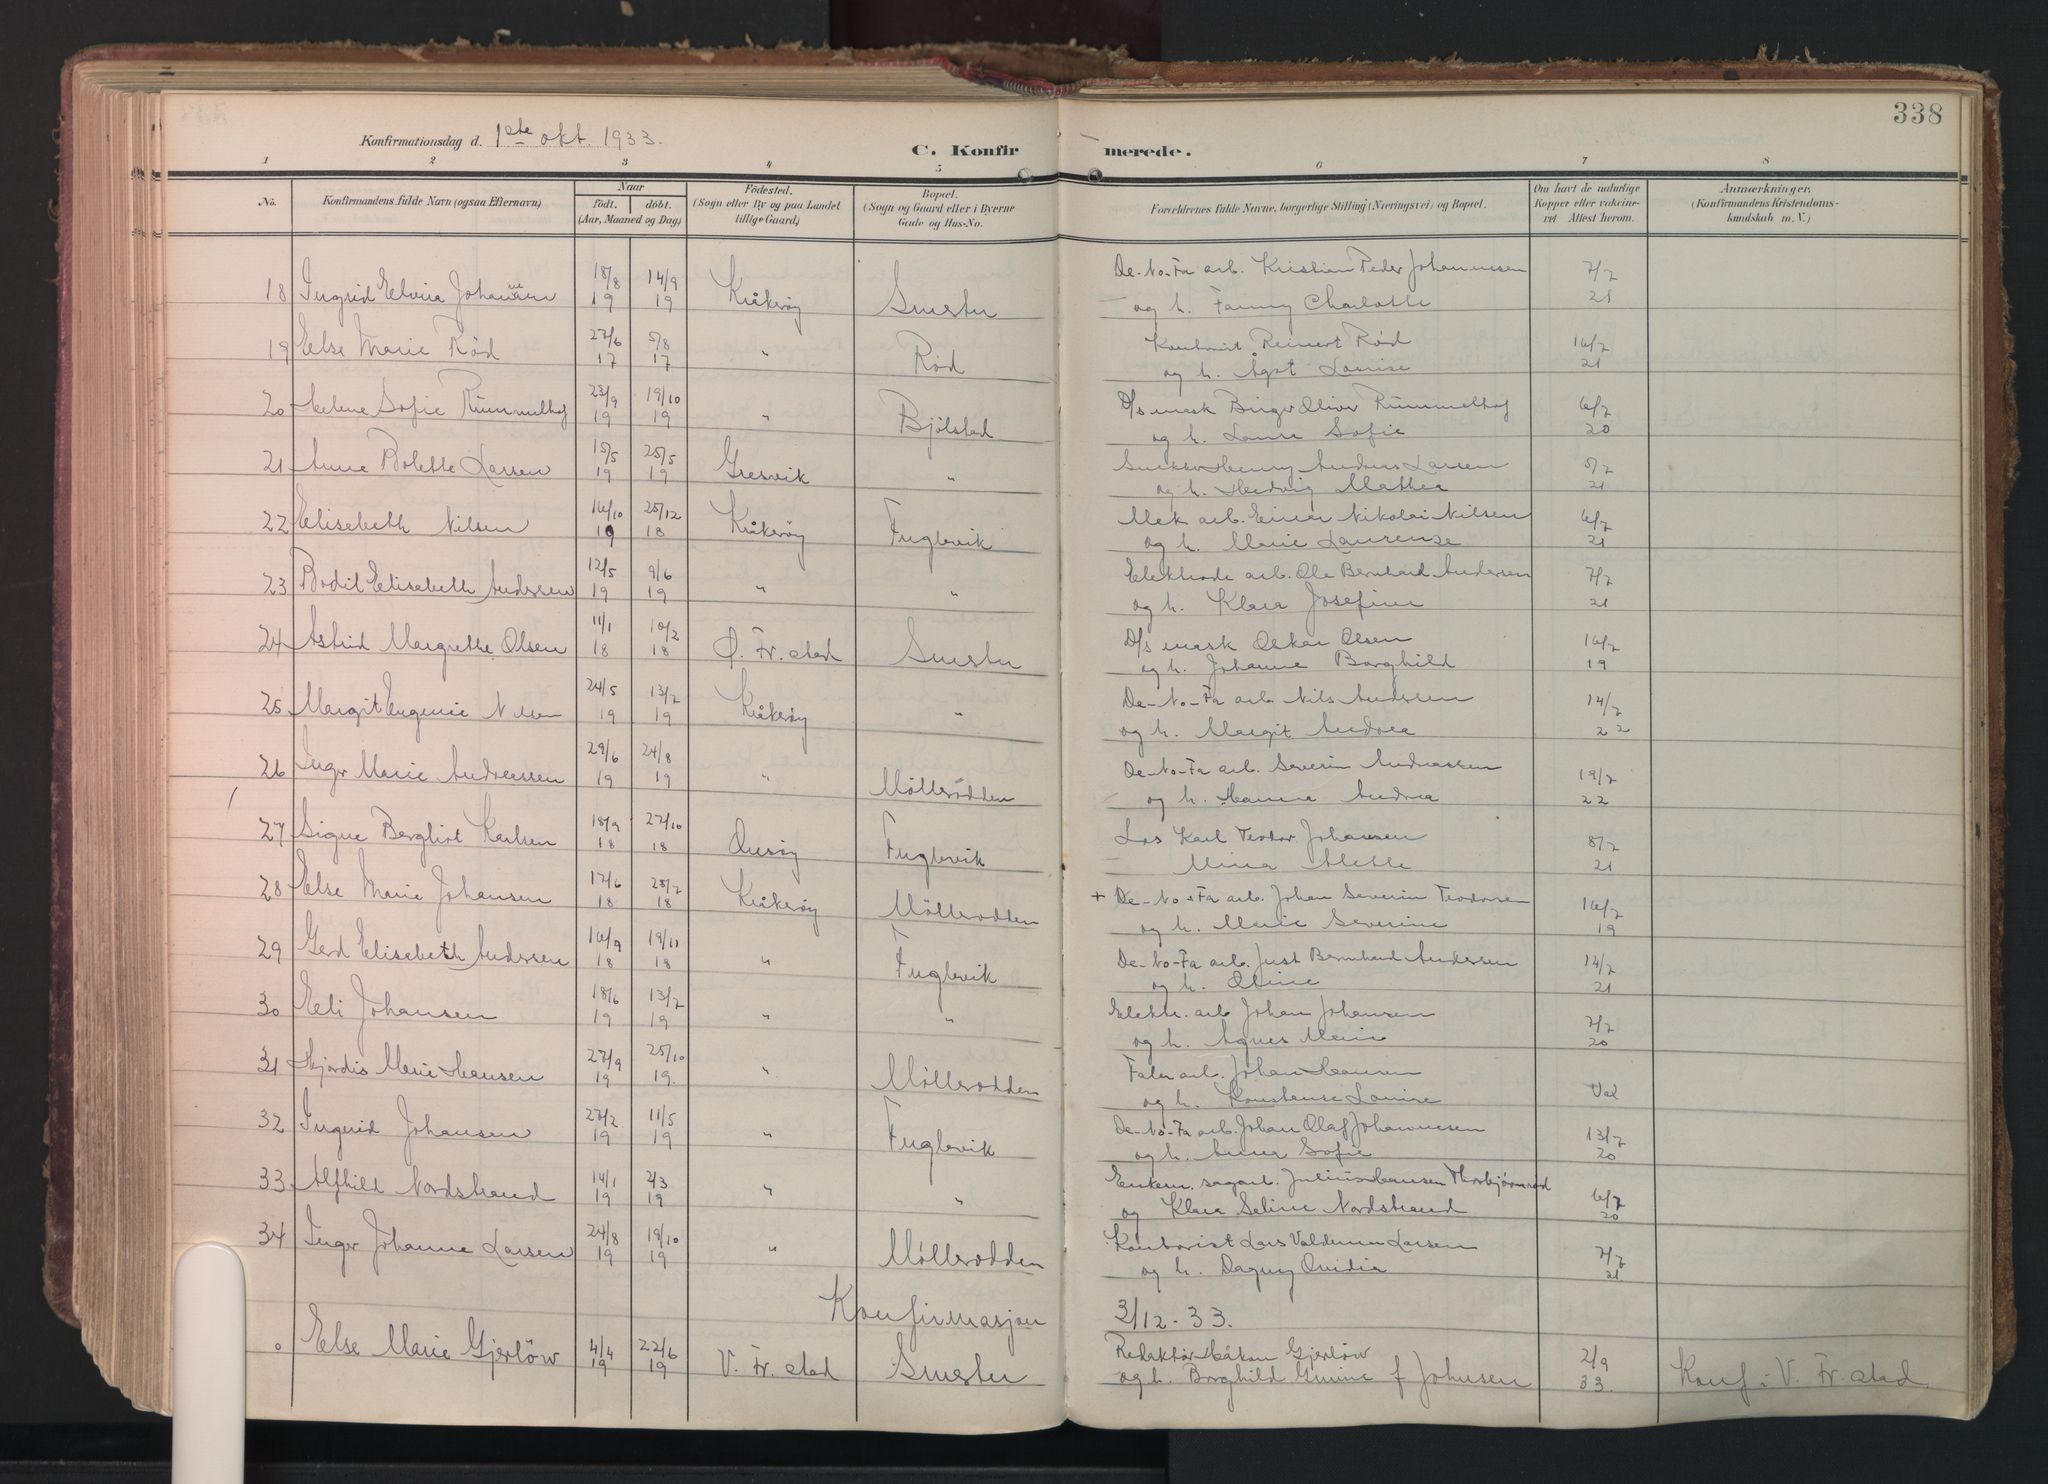 338
Konfirmationsdag d. 1ste okt. 1933.
C. Konfirmerede.
1 2 3 4 5 6 7 8
No. Konfirmandens fulde Navn (ogsaa Efternavn) Naar födt. döbt. (Aar, Maaned og Dag) Födested. (Sogn eller By og paa Landet tillige Gaard) Bopæl. (Sogn og Gaard eller i Byerne Gade og Hus-No. Forældrenes fulde Navne, borgerlige Stilling (Næringsvei) og Bopæl. Om havt de naturlige Kopper eller vakcineret Attest herom. Anmærkninger. (Konfirmandens Kristendomskundskab m. V.)
18 Ingrid Elvira Johannesen 18/8 19 14/9 19 Kråkerøy Smertu De-No-Fa arb. Kristian Peder Johannesen 7/7 21
og h. Fanny Charlotte
19 Else Marie Rød 27/6 17 5/8 17 " Rød Kontorist Reinert Rød 16/7 21
og h. Ågot Lovise
20 Helene Sofie Rummelhof 23/9 19 19/10 19 " Bjølstad D/s mask Birger Oliver Rummelhof 6/7 20
og h. Laura Sofie
21 Anne Bolette Larsen 15/5 19 25/5 19 Gresvik " Snekker Henry Andreas Larsen 5/7 21
og h. Hedvig Mathea
22 Elisabeth Nilsen 16/10 19 25/12 18 Kråkerøy Fuglevik Mek arb. Einar Nikolai Nilsen 6/7 21
og h. Marie Laurense
23 Bodil Elisabeth Andersen 12/5 19 9/6 19 " " Elektrode arb. Ole Bernhard Andersen 7/7 21
og h. Klara Josefine
24 Astrid Margrethe Olsen 11/1 18 10/2 18 Ø. Fr. stad Smertu D/s mask Oskar Olsen 16/7 19
og h. Johanne Borghild
25 Margit Eugenie Nilsen 24/5 19 13/7 19 Kråkerøy " De-No-Fa arb. Nils Andersen 14/7 22
og h. Margit Andrea
26 Inger Marie Andreassen 29/6 19 24/8 19 " Møllerodden De-No-Fa arb. Severin Andreassen 19/7 22
og h. Hanna Andrea
27 Signe Bergliot Karlsen 18/9 18 27/10 18 Onsøy Fuglevik Los Karl Teodor Johansen 8/7 21
Mina Alette
28 Else Marie Johansen 17/6 18 28/7 18 Kråkerøy Møllerodden + De-No-Fa arb. Johan Severin Teodorsen 16/7 19
og h. Marie Severine
29 Gerd Elisabeth Andersen 16/9 18 19/11 18 " Fuglevik De-No-Fa arb. Just Bernhard Andersen 14/7 21
og h. Oline
30 Eli Johansen 18/6 19 13/7 19 " " Elektr. arb Johan Johansen 7/7 20
og h. Agnes Marie
31 Hjørdis Marie Hansen 27/9 19 25/10 19. " Møllerodden Fabr arb. Johan Hansen Vak
og h. Konstanse Lovise
32 Ingrid Johansen 27/2 19 11/5 19 " Fuglevik De-No-Fa arb. Johan Olaf Johannesen 13/7 20
og h. Anna Sofie
33 Alfhild Nordstrand 14/1 19 2/3 19 " " Enkem. sagarb. Julius Hansen Thorbjørnrød 6/7 20
og Klara Seline Nordstrand
34 Inger Johanne Larsen 24/8 19 19/10 19 " Møllerodden Kontorist Lars Valdemar Larsen 7/7 21
og h. Dagny Ovidia
Konfirmasjon 3/12-33.
0 Else Marie Gjerløw 4/4 19 22/6 19 V. Fr. stad Smertu Redaktør Håkon Gjerløw 2/9 33. Konf i V. Fr. stad
og h. Borghild f Johnsen